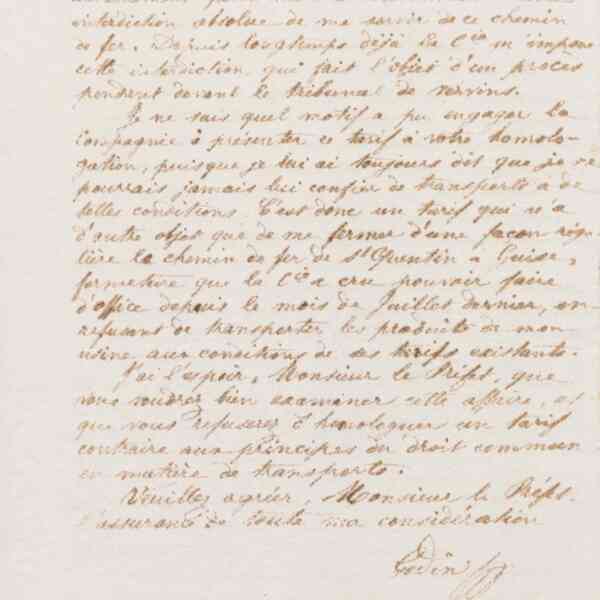 interdiction absolue de me servir de ce chemin
de fer. Depuis longtemps déjà la Cie m'impose
cette interdiction qui fait l'objet d'un procès
pendant devant le tribunal de Vervins.
Je ne sais quel motif a pu engager la
Compagnie à présenter ce tarif à votre homolo-
gation, puisque je lui ai toujours dit que je ne
pourrais jamais lui confier de transports à de
telles conditions. C'est donc un tarif qui n'a
d'autre objet que de me fermer d'une façon régu-
lière le chemin de fer de St Quentin à Guise,
fermeture que la Cie a cru pouvoir faire
d'office depuis le mois de Juillet dernier, en
refusant de transporter les produits de mon
usine aux conditions de ses tarifs existants.
J'ai l'espoir, Monsieur le Préfet, que
vous voudrez bien examiner cette affaire, et
que vous refuserez d'homologuer un tarif
contraire aux principes du droit commun
en matière de transports.
Veuillez agréer, Monsieur le Préfet,
l'assurance de toute ma considération
Godin